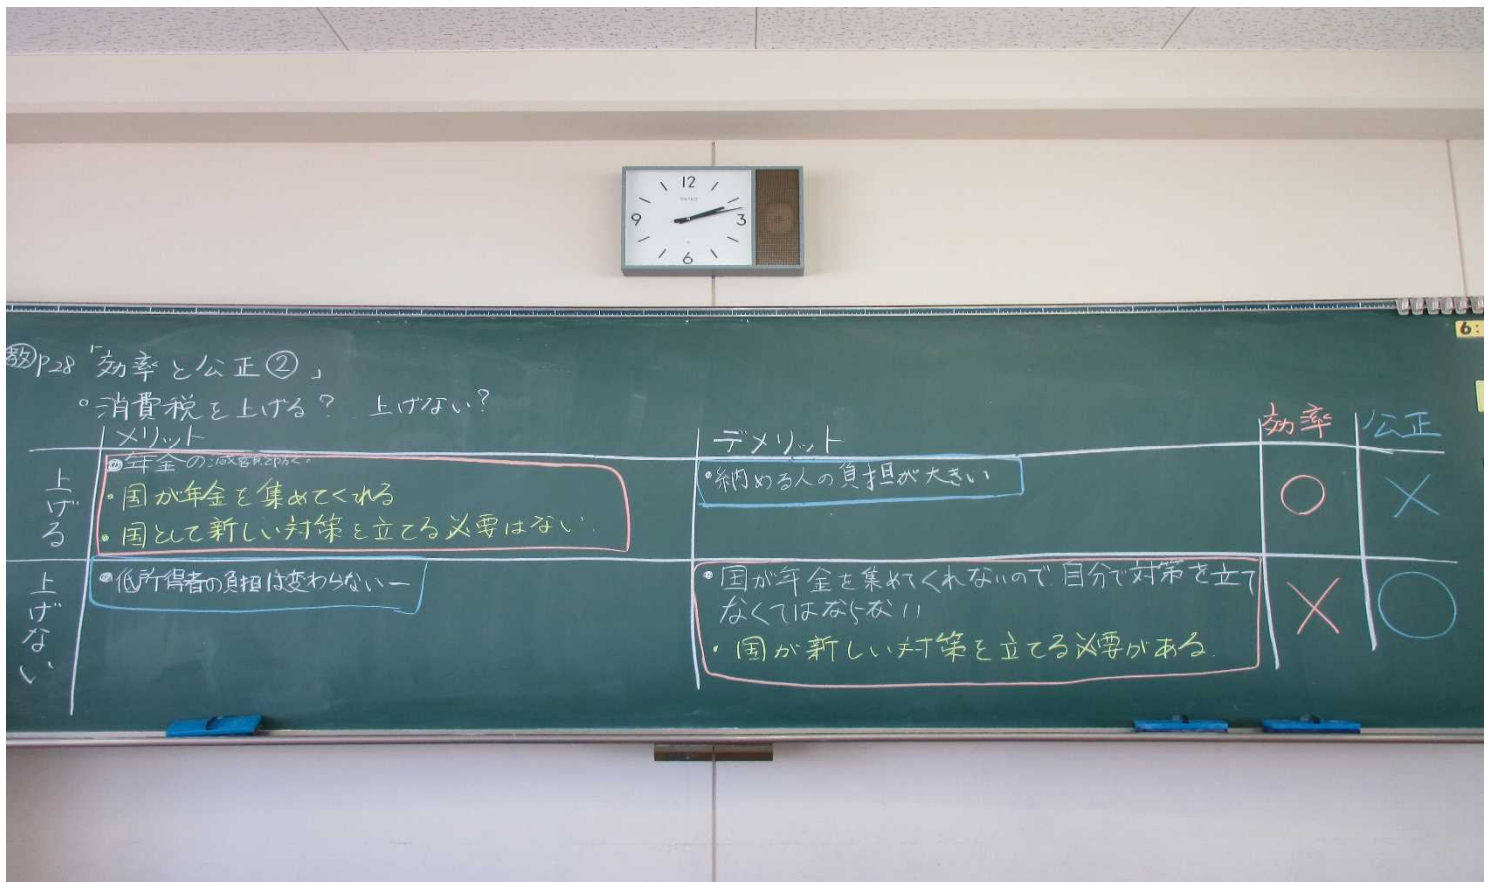 12
3
6
9
6:
教P.28「効率と公正②」
消費税を上げる? 上げない?
メリット
デメリット
効率
公正
上げる
・年金の減額を防ぐ。
・国が年金を集めてくれる
・国として新しい対策を立てる必要はない.
・納める人の負担が大きい
○
×
上げない
・低所得者の負担は変わらない
・国が年金を集めてくれないので自分で対策を立て
なくてはならない
・国が新しい対策を立てる必要がある.
×
○